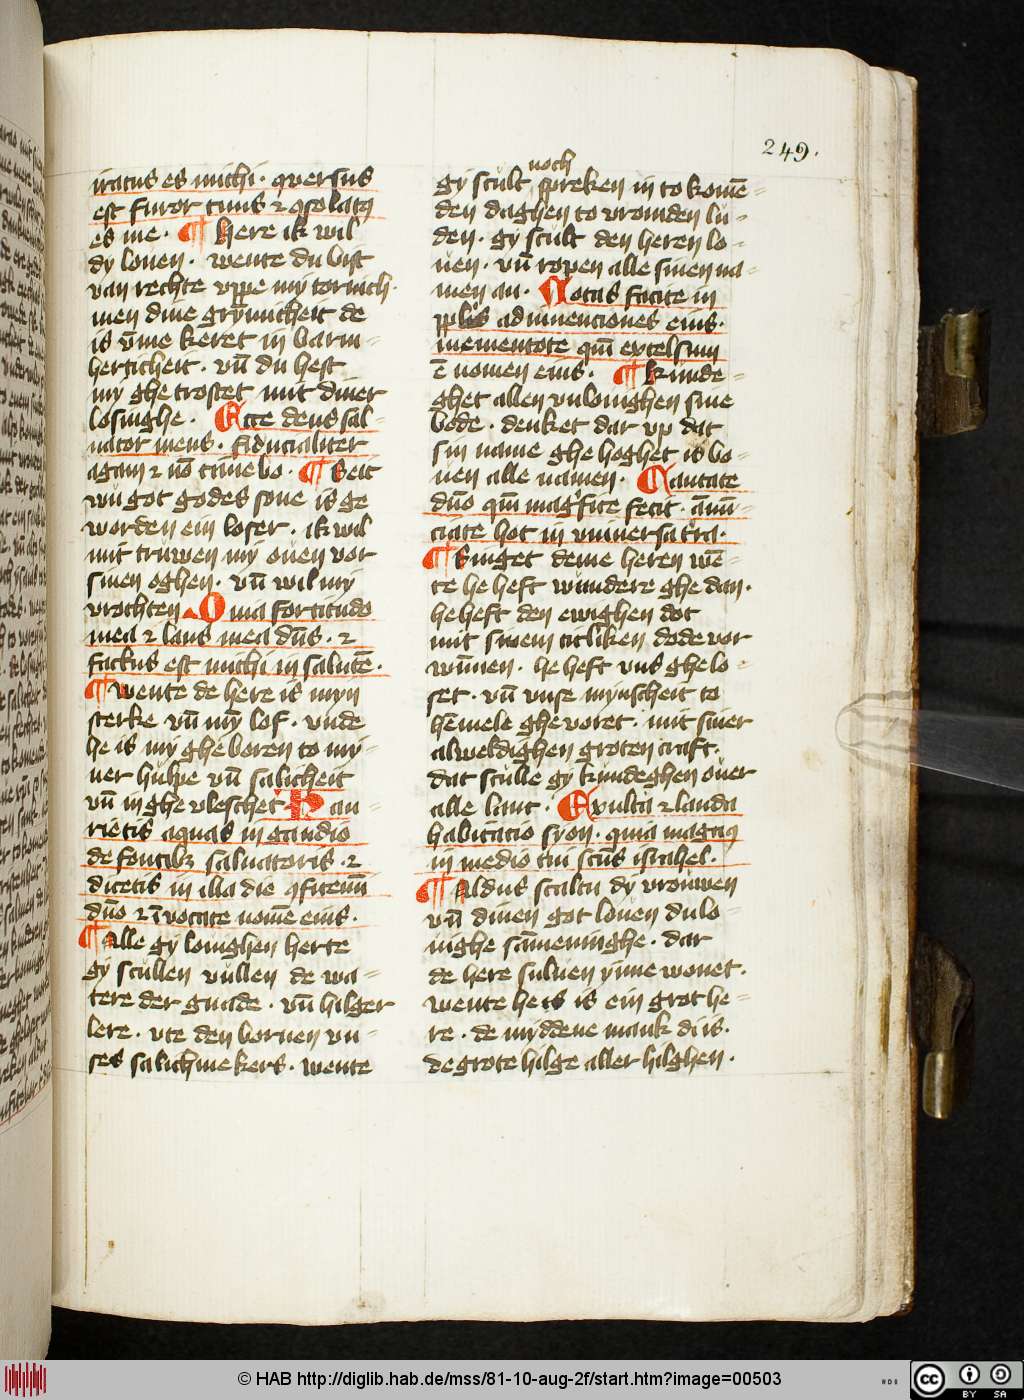 249.
iratus es michi · ꝯuersus
est furor tuus ⁊ ꝯsolatꝰ
es me · ¶ Here ik wil
dy louen · wente du bist
van rechte vppe my tornich·
men dine grymicheit de
is v̄me keret in barm-
herticheit · vn̄ du hest
my ghe trostet mit diner
losinghe · Ecce deus sal-
uator meus · fiducialiter
agam ⁊ nō timebo · ¶ Seit
wu got godes sone is ge
worden ein loser · ik wil
mit truwen my ouen vor
sinen oghen · vn̄ wil my
vrochten Quia fortitudo
mea ⁊ laus mea dn̄s · ⁊
factus est michi in salutē ·
¶ wente de here is myn
sterke vn̄ mȳ lof · vnde
he is my ghe boren to my-
ner hulpe vn̄ salicheit
vn̄ in ghe vleschet Hau-
rietis aquas in gaudio
de fontibꝫ saluatoris · ⁊
dicetis in illa die ꝯfitemī
dn̄o ⁊ īvocate nomē eius ·
¶ Alle gy louighen herte
gy scullen vullen de wa-
tere der gnade · vn̄ hilger
lere · vte den bornen vn-
ses salichmekers · wente
noch
gy scult spreken in to komē-
den daghen to vromden lu-
den · gy scult den heren lo-
uen · vn̄ ropen alle sinen na-
men an · Notas facite in
pplis adinuenciones eius ·
mementote qm̄ excelsum
ē nomen eius · ¶ kunde-
ghet allen vulouighen sine
bode · denket dar vp dat
sin name ghe hoghet is bo-
uen alle namen · Cantate
dn̄o qm̄ maḡfice fecit · ānū-
ciate hoc in vniuersa t̄ra ·
¶ Singet deme heren wē-
te he heft wundere ghe dan ·
he heft den ewighen dot
mit sinem titliken dode vor
wūnen · he heft vns ghe lo-
set · vn̄ vnse mynscheit to
hēmele ghe voret · mit siner
alweldighen groten craft ·
dat sculle gy kundeghen ouer
alle lant · Exulta ⁊ lauda
habitacio syon · quia magnꝰ
in medio tui scūs israhel ·
¶ Aldus scaltu dy vrouwen
vn̄ dinen got louen du lo-
uighe sāmeninghe · dar
de here suluen ynne wonet ·
wente he is is ein grot he-
re · de myddene mank di is ·
de grote hilge aller hilghen ·
© HAB http://diglib.hab.de/mss/81-10-aug-2f/start.htm?image=00503
HAB
cc BY SA